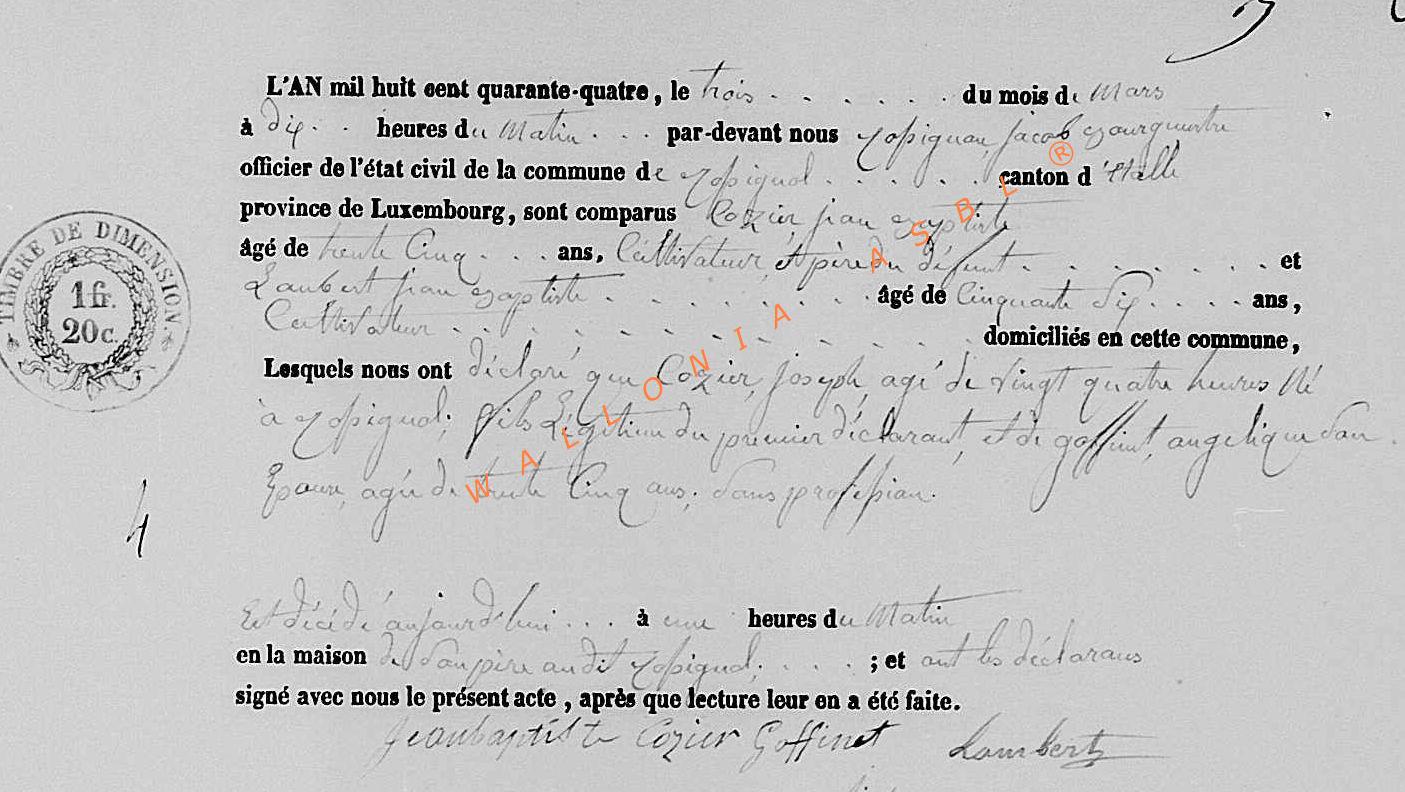 L'AN mil huit cent quarante-quatre, le trois . . . . . . du mois de Mars
à dix . . heures du Matin . . . par-devant nous Jacob Bourgmestre
officier de l'état civil de la commune de . . . . . canton d'Etalle
province de Luxembourg, sont comparus Cozier, jean Baptiste
âgé de trente Cinq . . . ans, Cultivateur, et père du défunt . . . . . . . et
Lambert jean Baptiste . . . . . . . . âgé de Cinquante Six . . . . ans,
Cultivateur . . . . . . . . . . . . domiciliés en cette commune,
Lesquels nous ont déclaré que Cozier, Joseph, agé de Vingt quatre heures Né
à fils Légitime du premier déclarant, et de goffinet, angelique Son
Epouse, agée de trente Cinq ans, Sans profession.
4
Est décédé aujourd'hui . . . à une heures du Matin
en la maison de Son père audit . . . . ; et ont les déclarans
signé avec nous le présent acte, après que lecture leur en a été faite.
Jean baptiste Cozier Goffinet Lambert
TIMBRE DE DIMENSION.
1 fr.
20 c.
WALLONIA ASBL ®